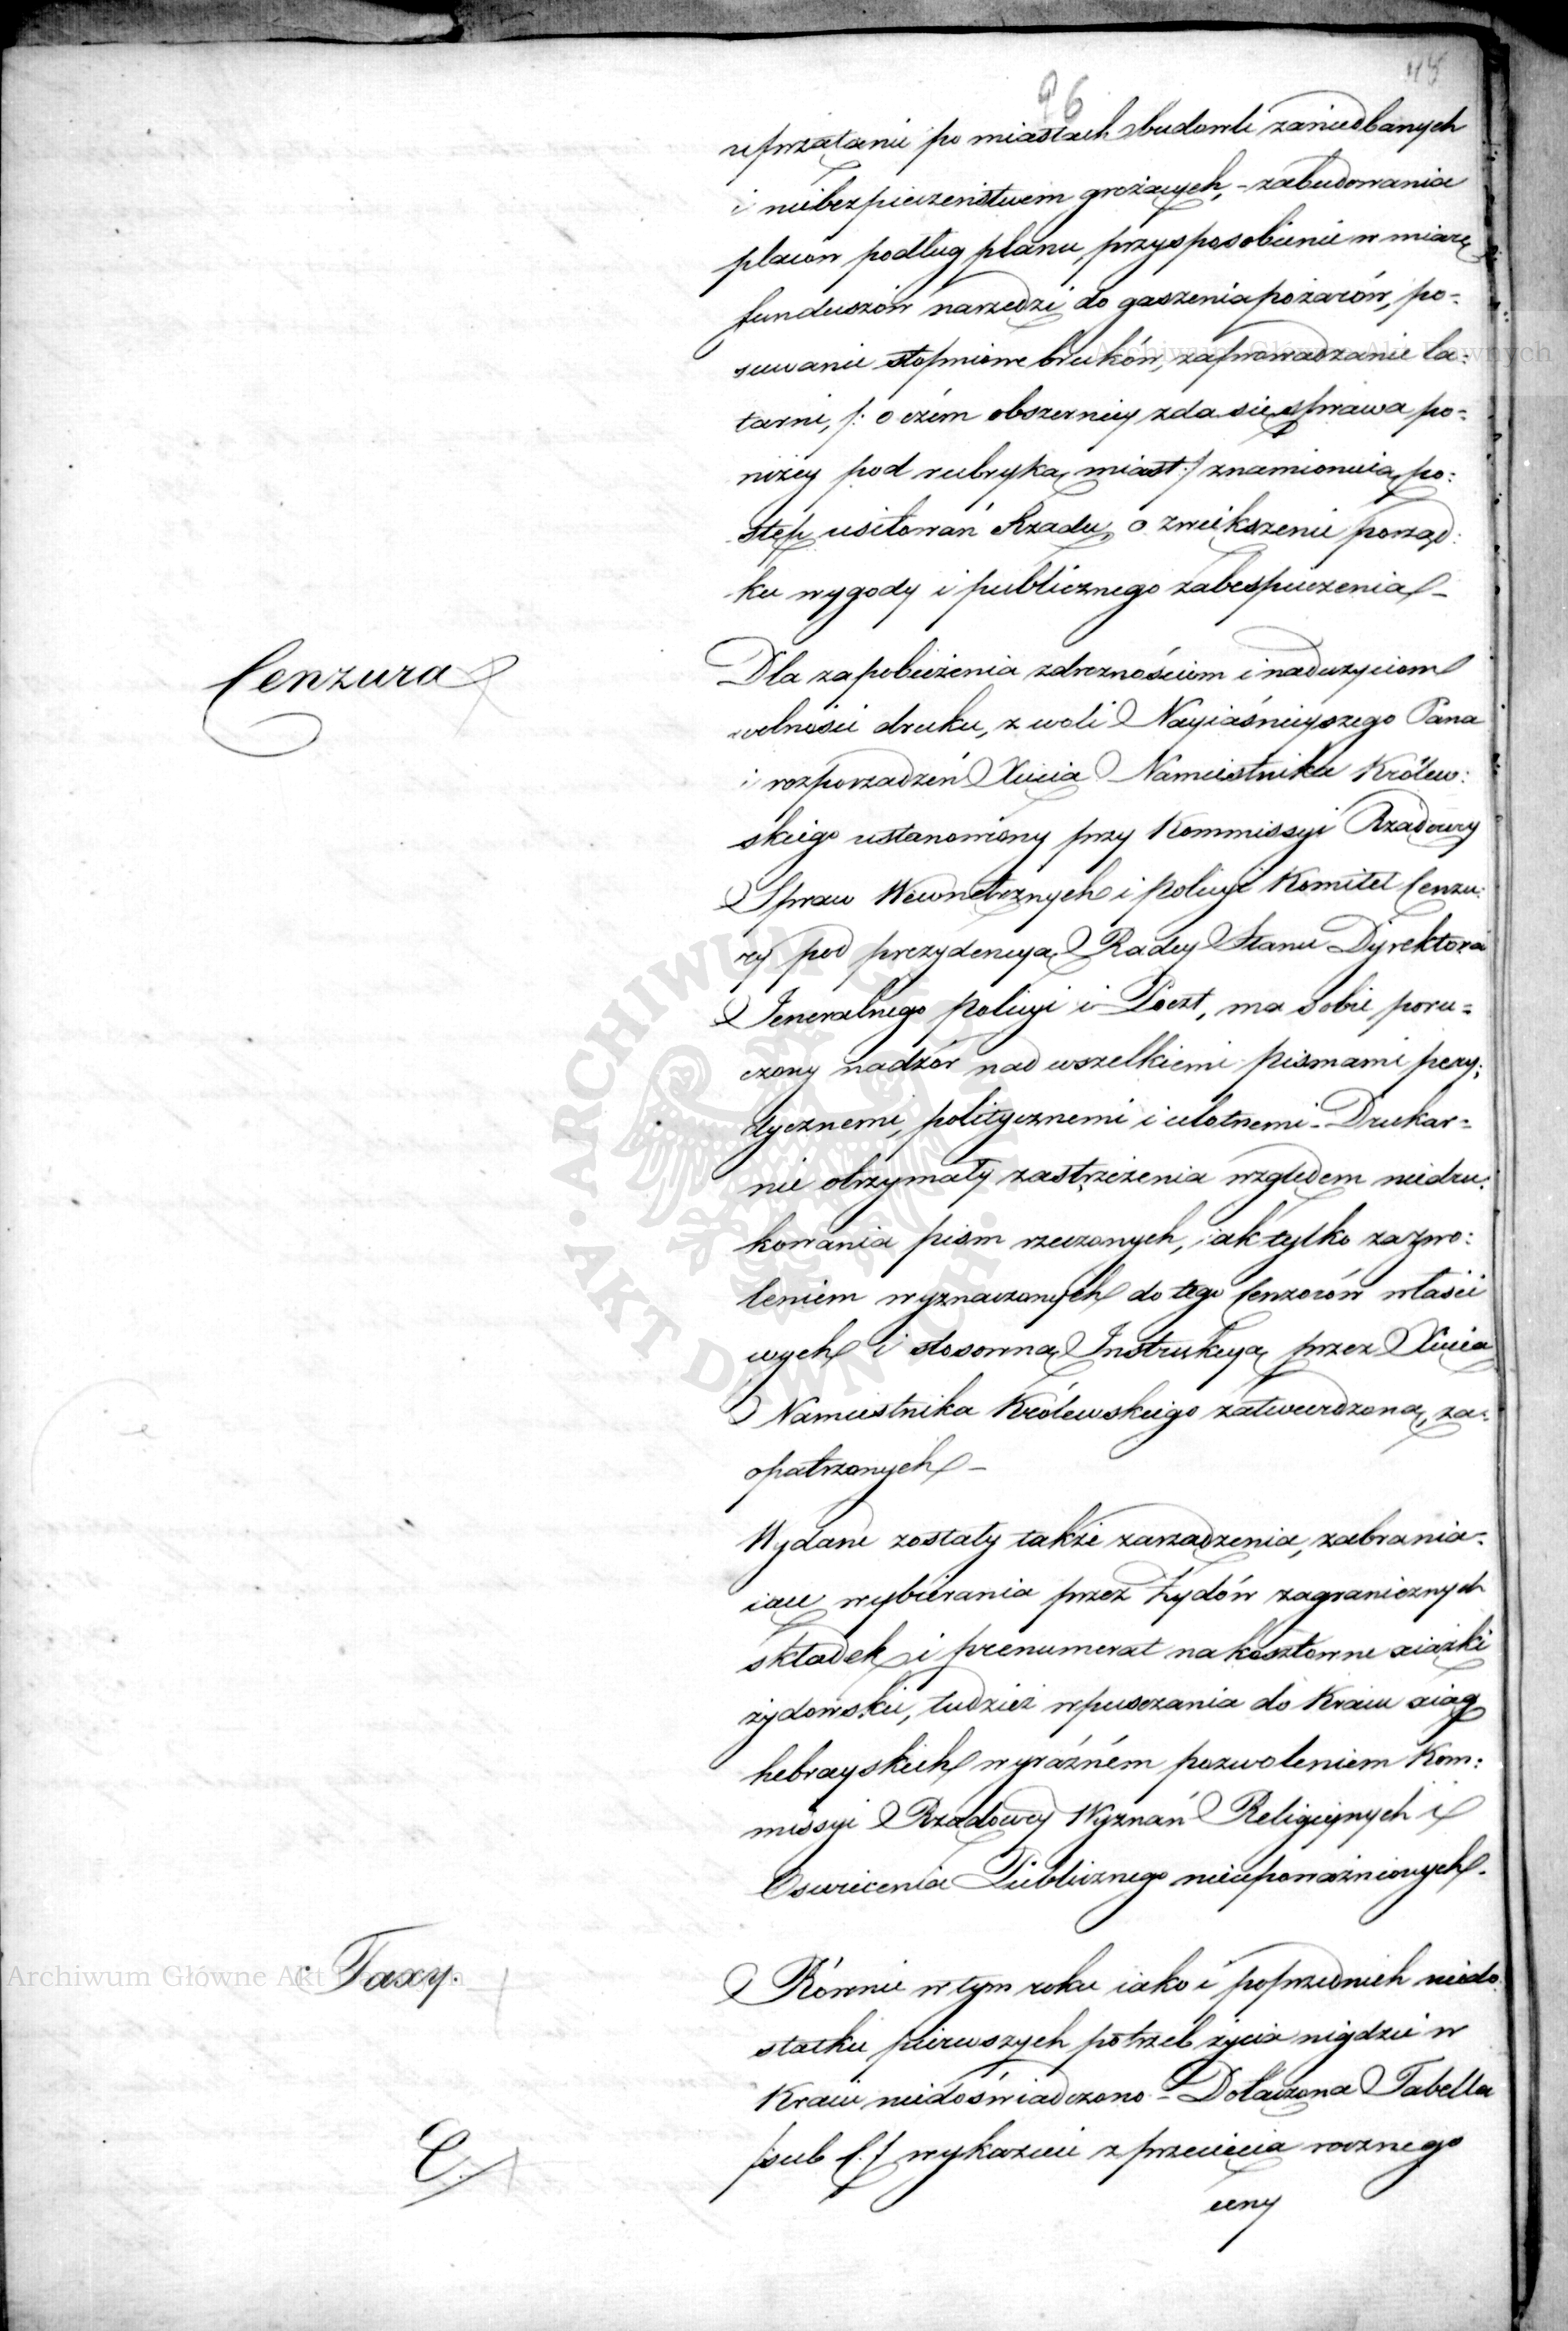 96
115
uprzątanie po miastach budowli zaniedbanych
i niebezpieczeństwem grożących, - zabudowania
placow podług planu, przysposobienie w miarę
funduszów narzędzi do gaszenia pożarów, po-
suwanie stopniowe bruków, zaprowadzanie la-
tarni, /: o czém obszerniey zda się sprawa po-
niżey pod rubryką miast :/ znamionuią po-
stęp usiłowań Rządu, o zwiększenie porząd-
ku wygody i publicznego zabespieczenia -
Cenzura
Dla zapobieżenia zdrożnościom i nadużyciom
wolności druku, z woli Nayiaśnieyszego Pana
i rozporządzeń Xięcia Namiestnika Królew-
skiego ustanowiony przy Kommissyi Rządowey
Spraw Wewnętrznych i policyi Komitet Cenzu-
ry pod prezydencyą Radcy Stanu Dyrektora
Jeneralnego policyi i Poczt, ma sobie poru-
czony nadzór nad wszelkiemi pismami pery-
dycznemi, politycznemi i ulotnemi - Drukar-
nie otrzymały zastrzeżenia względem niedru-
kowania pism rzeczonych, iak tylko za zwo-
leniem wyznaczonych do tego Cenzorów właści
wych i stosowną Instrukcyą przez Xięcia
Namiestnika Królewskiego zatwierdzoną, za-
opatrzonych -
Wydane zostały także zarządzenia, zabrania-
iące wybierania przez Żydów zagranicznych
składek i prenumerat na kosztowne xiążki
żydowskie, tudzież wpuszczania do Kraiu xiąg
hebrayskich wyraźném pozwoleniem Kom-
missyi Rządowey Wyznań Religiynych i
Oswiecenia Publicznego nieupoważnionych.
Taxy.
Równie w tym roku iako i poprzednich niedo
statku pierwszych potrzeb życia nigdzie w
Kraiu niedoświadczono - Dołączona Tabella
C.
/sub C./ wykazuie z przecięcia rocznego
ceny
Archiwum Główne Akt Dawnych
Archiwum Główne Akt Dawnych
ARCHIWUM GŁÓWNE AKT DAWNYCH